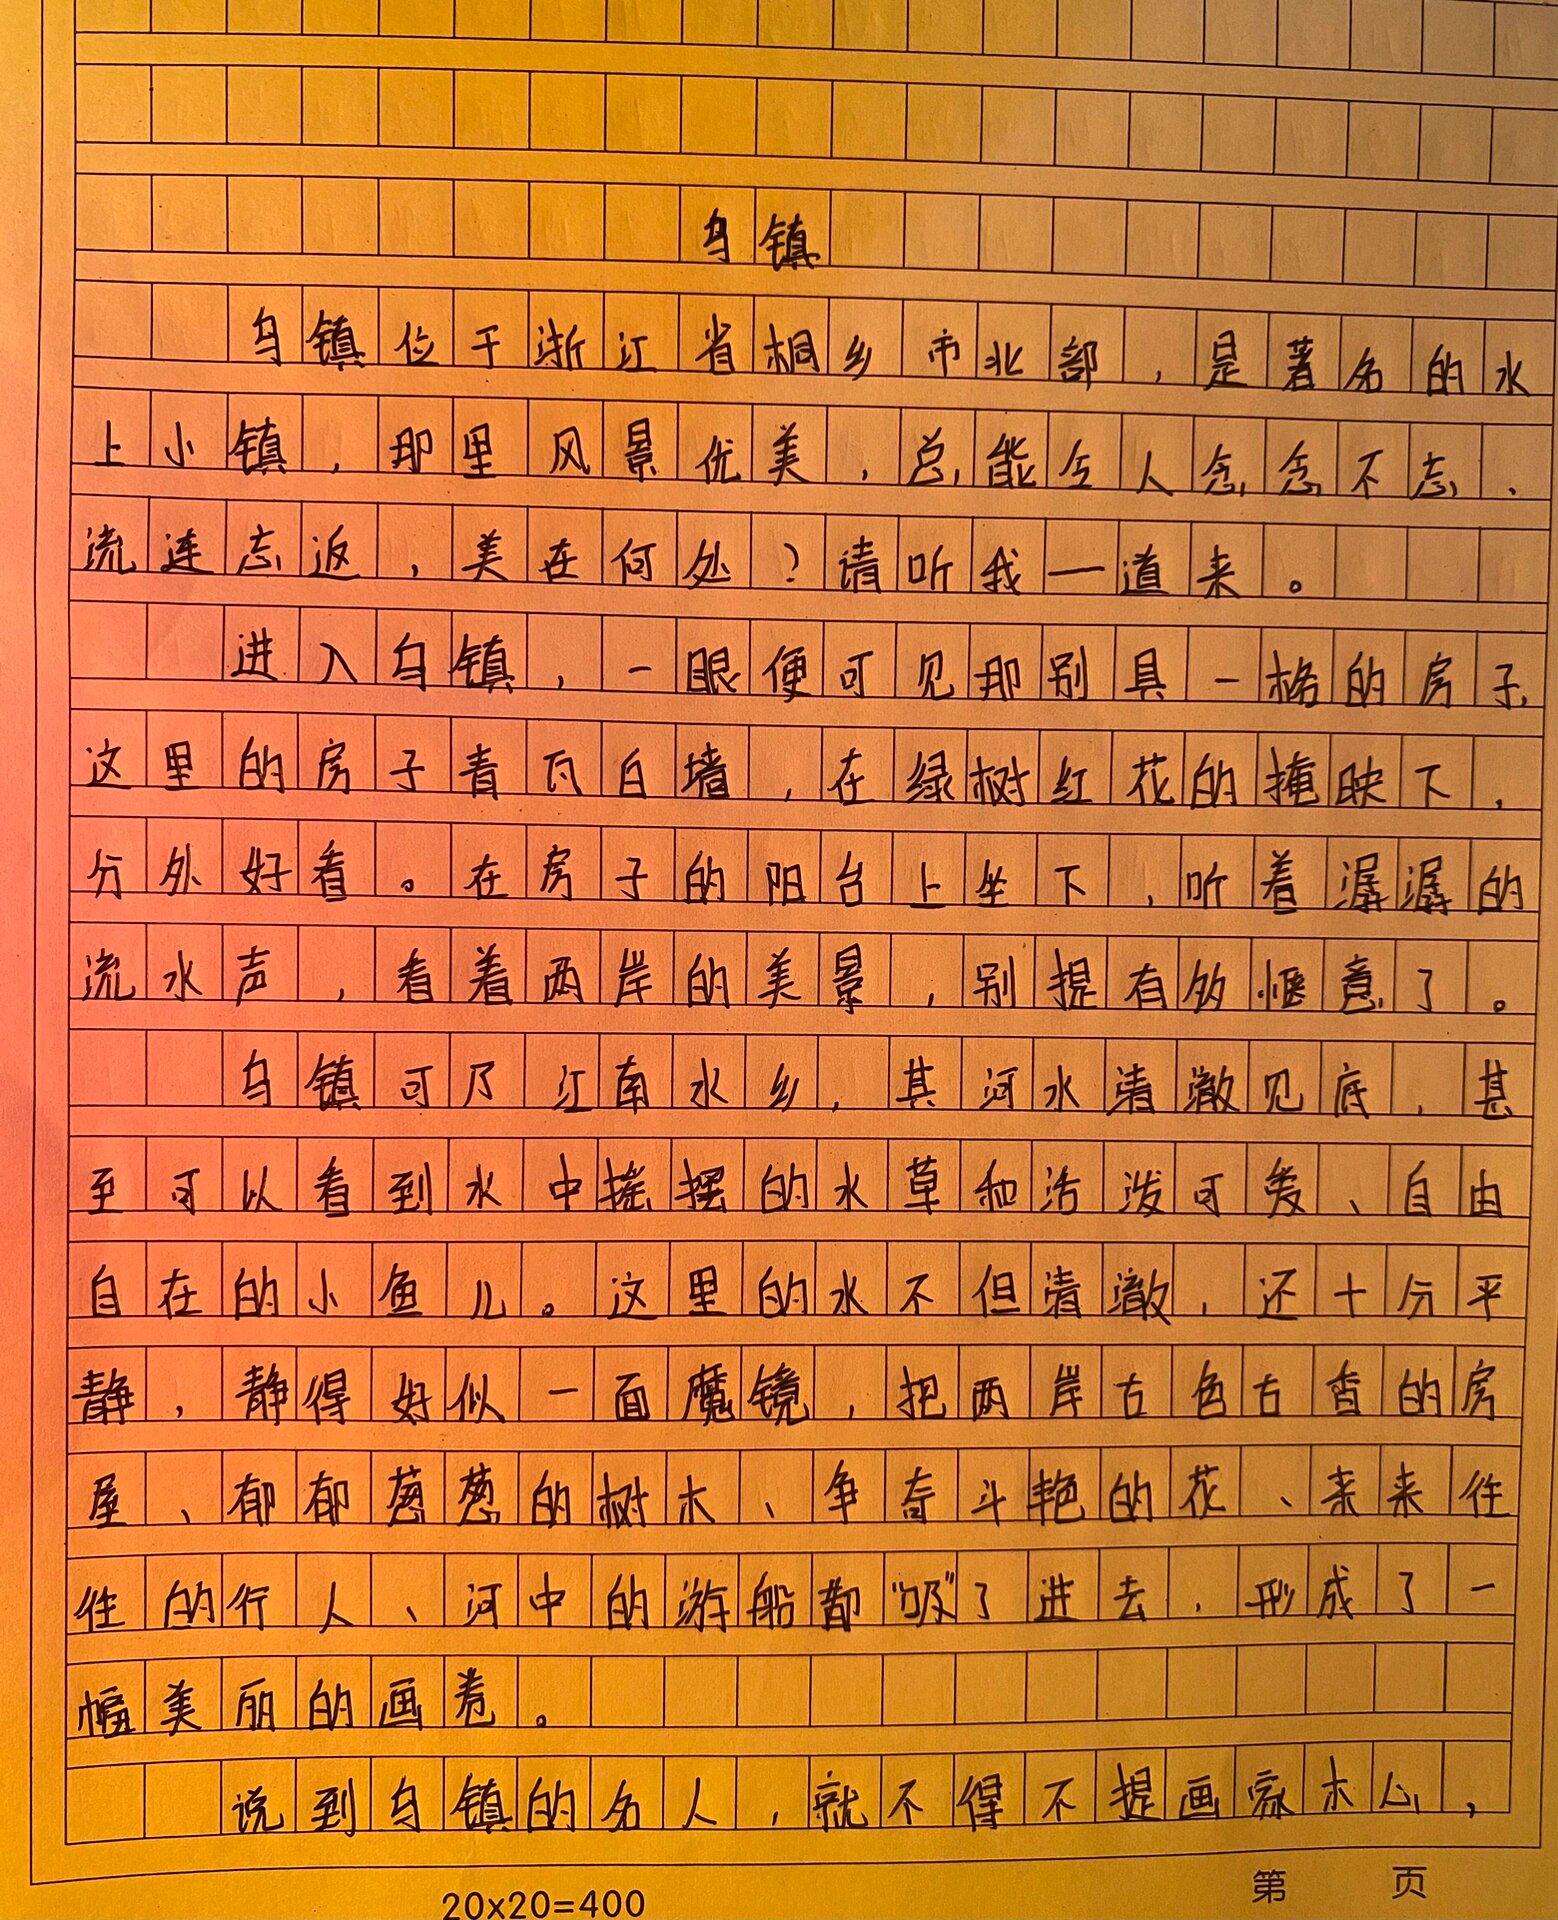 乌镇
乌镇位于浙江省桐乡市北部，是著名的水
上小镇，那里风景优美，总能令人念念不忘、
流连忘返，美在何处？请听我一一道来。
进入乌镇，一眼便可见那别具一格的房子，
这里的房子青瓦白墙，在绿树红花的掩映下，
分外好看。在房子的阳台上坐下，听着潺潺的
流水声，看着两岸的美景，别提有多惬意了。
乌镇可乃江南水乡，其河水清澈见底，甚
至可以看到水中摇摆的水草和活泼可爱、自由
自在的小鱼儿。这里的水不但清澈，还十分平
静，静得好似一面魔镜，把两岸古色古香的房
屋、郁郁葱葱的树木、争奇斗艳的花、来来往
往的行人、河中的游船都“吸”了进去，形成了一
幅美丽的画卷。
说到乌镇的名人，就不得不提画家木心，
20x20=400
第 页